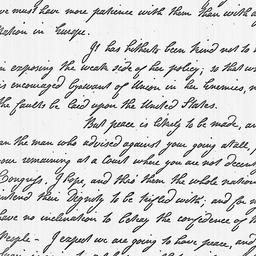 we must have more patience with them than with a
tation in Europe.
It has hitherto been kind not to
in exposing the weak side of her policy; so that w
is encouraged Growant of Union in her Enemies, n
the faults be laid upon the United States.
But peace is likely to be made, an
an the man who advised against your going atall,
your remaining at a Court where you are not decent
Congress, I hope, and thro them the whole nation
intend their Dignity to be trifled with; and for m
have no inclination to betray the confidence of th
People — I expect we are going to have peace, and